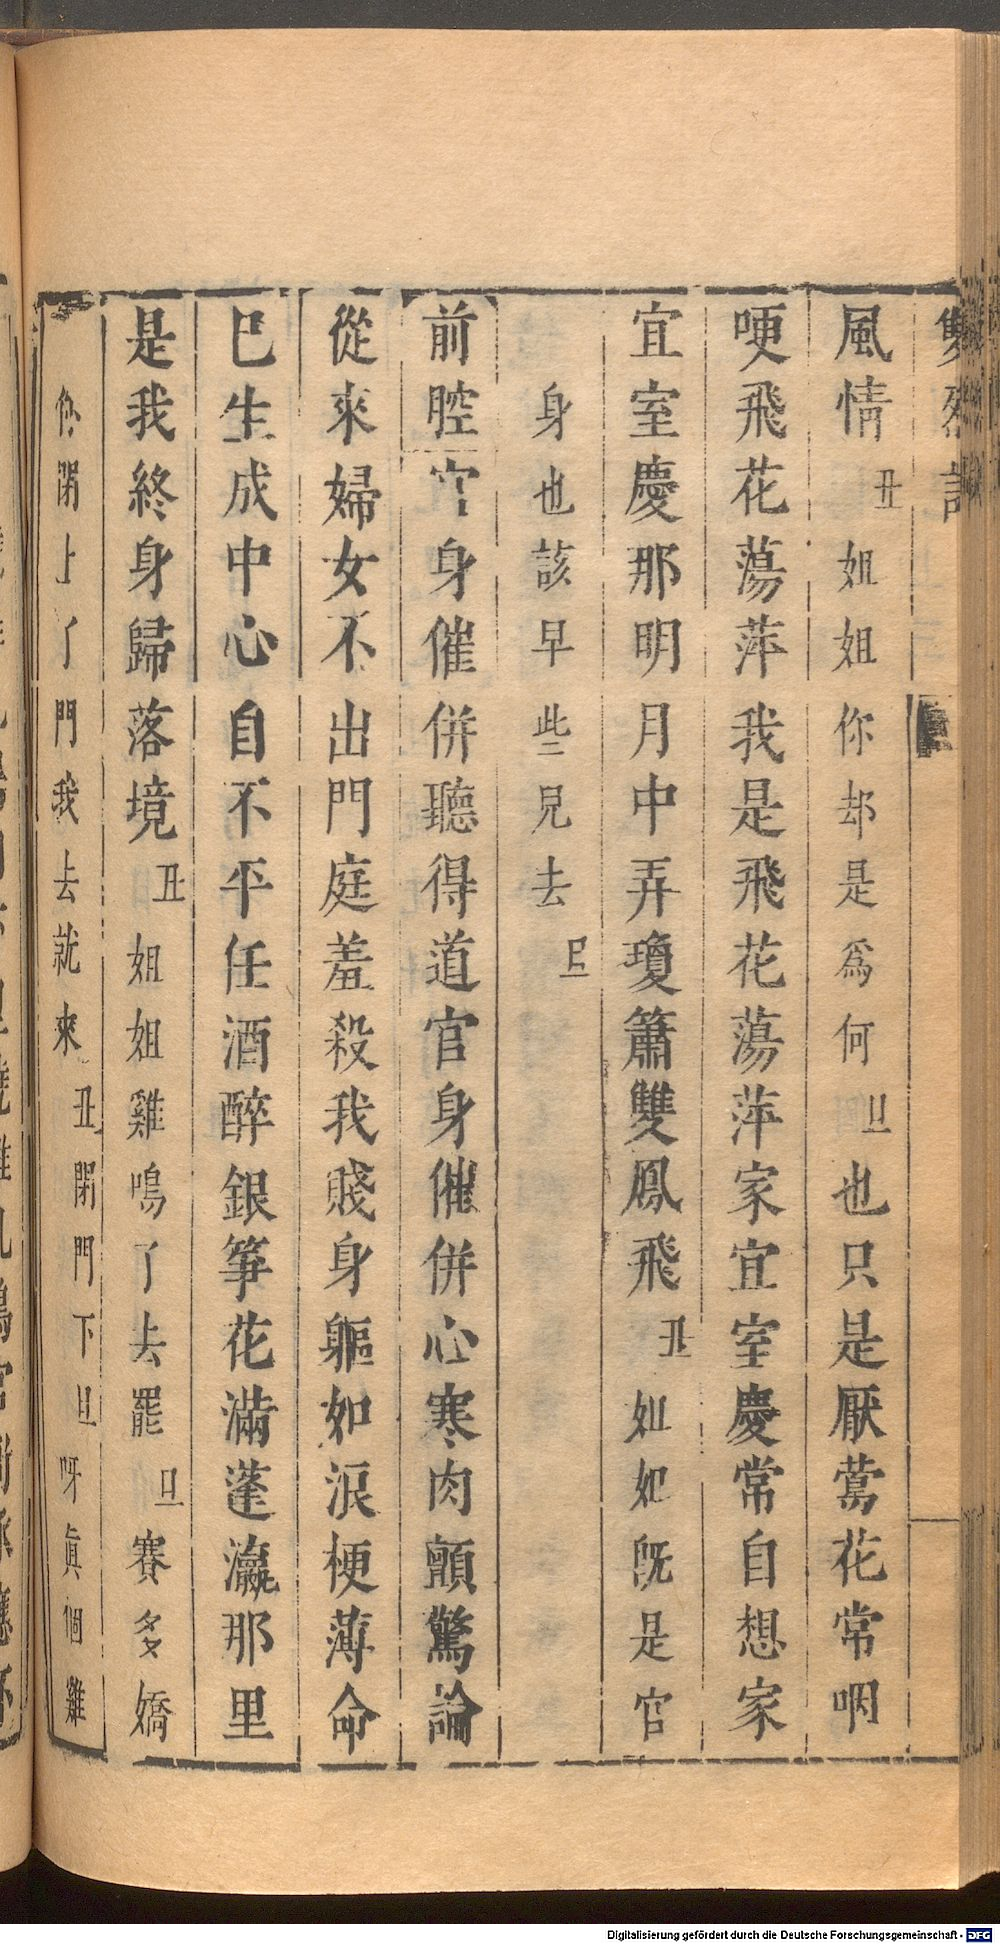 雙烈記
風情丑姐姐你却是爲何旦也只是厭鶯花常咽
哽飛花蕩萍我是飛花蕩萍家宜室慶常自想家
宜室慶那明月中弄瓊簫雙鳳飛丑如如旣是官
身也該早些兒去旦
前腔官身催併聽得道官身催併心寒肉顫驚論
從來婦女不出門庭羞殺我賤身軀如淚梗薄命
已生成中心自不平任酒醉銀箏花滿蓬瀛那里
是我終身歸落境丑姐姐雞鳴了去罷旦賽多嬌
你閉上了門我去就來丑閉門下旦呀眞個雞
Digitalisierung gefördert durch die Deutsche Forschungsgemeinschaft - DFG